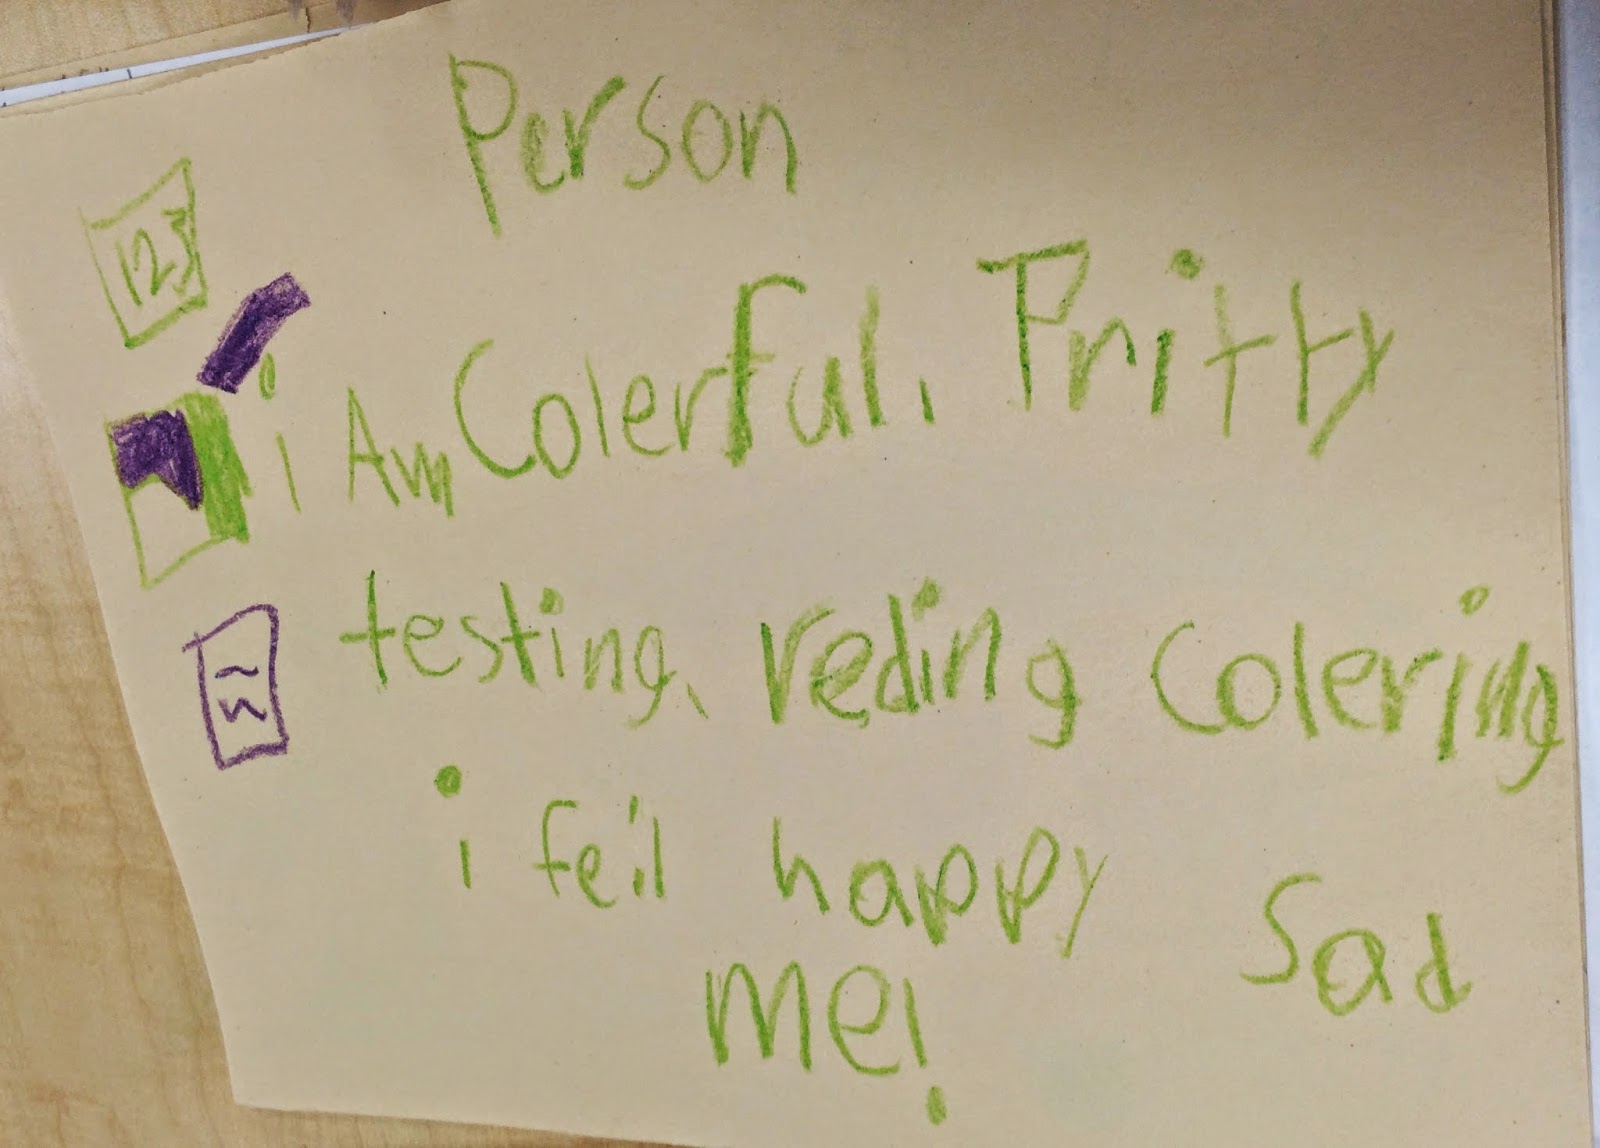 Person
123
i Am Colerful, Pritty
testing, reding Colering
i feil happy Sad
me!